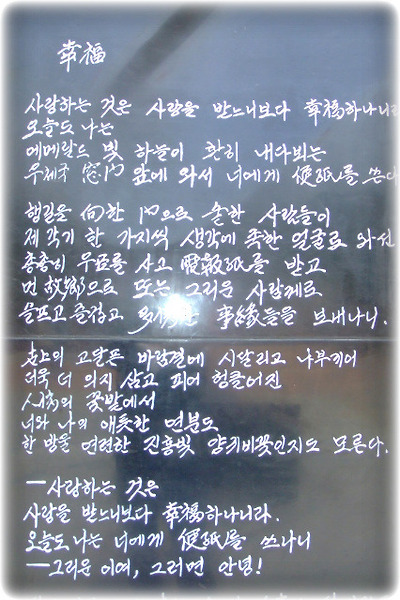 幸福
사랑하는 것은 사랑을 받느니보다 幸福하나니라
오늘도 나는
에메랄드 빛 하늘이 환히 내다뵈는
우체국 窓門 앞에 와서 너에게 便紙를 쓴다
행길을 向한 門으로 숱한 사람들이
제각기 한 가지씩 생각에 족한 얼굴로 와선
총총히 우표를 사고 電報紙를 받고
먼 故鄕으로 또는 그리운 사람께로
슬프고 즐겁고 多情한 事緣들을 보내나니.
세상의 고달픈 바람결에 시달리고 나부끼어
더욱 더 의지 삼고 피어 헝클어진
人情의 꽃밭에서
너와 나의 애틋한 연분도
한 방울 연련한 진홍빛 양귀비꽃인지도 모른다.
―사랑하는 것은
사랑을 받느니보다 幸福하나니라.
오늘도 나는 너에게 便紙를 쓰나니
―그리운 이여, 그러면 안녕!